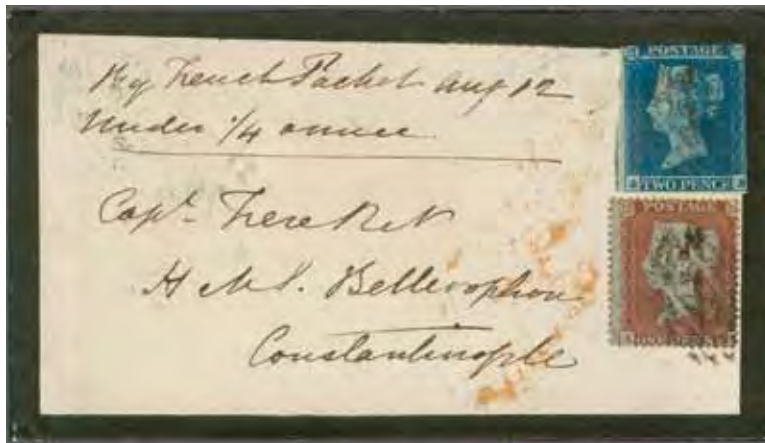 By French Packet Aug 12
Under 1/4 ounce
Capt. R N
H M S. Bellerophon
Constantinople
POSTAGE
TWO PENCE
POSTAGE